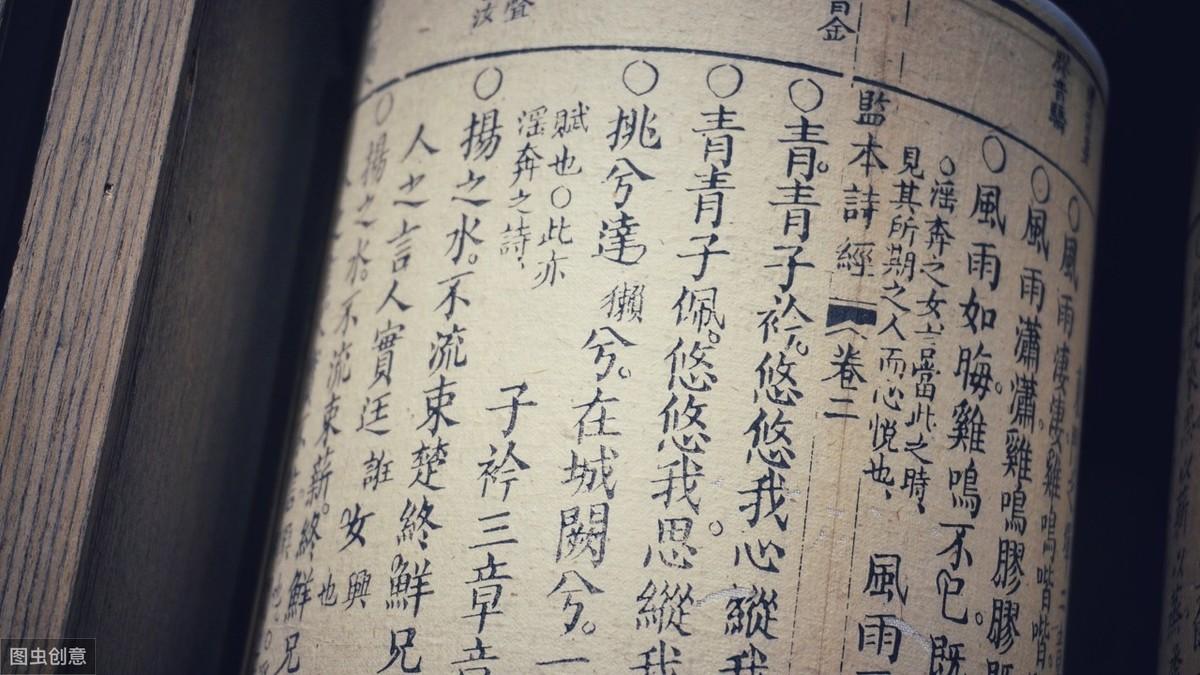 ○風雨淒淒雞鳴喈喈
○風雨瀟瀟雞鳴膠膠既
○風雨如晦。雞鳴不已。既
○淫奔之女言當此之時、
見其所期之人而心悅也、
風雨
監本詩經
卷二
○青。青子衿。悠悠我心縱我
○青青子佩。悠悠我思。縱我
○挑兮達兮。在城闕兮。一
獺
賦也○此亦
淫奔之詩、
子衿三章章
○揚之水。不流束楚終鮮兄
人之言人實迋誑女
興也
○揚之水。不流束薪。終鮮兄
圖虫创意